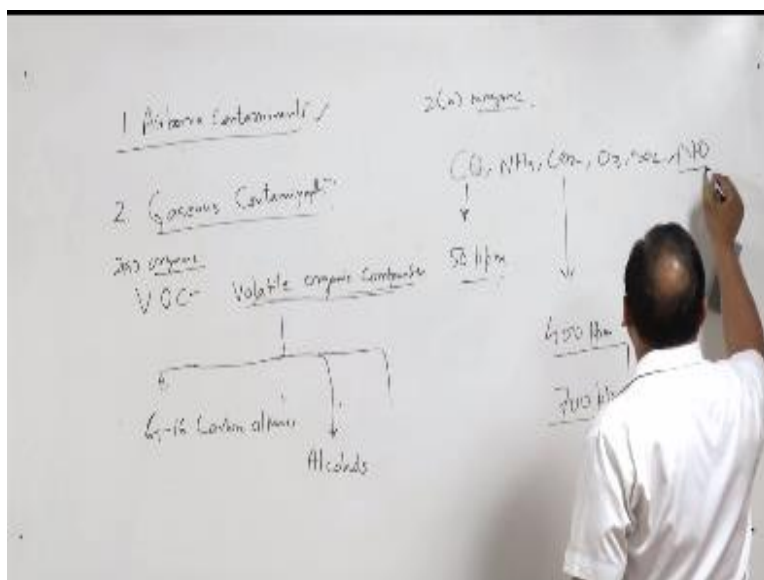 1 Airborne Contaminants
2 Gaseous Contaminants
2(a) organic
VOC Volatile organic Compounds
Carbon
Alcohols
2(b) inorganic
CO, NH3, CO2, O3, SO2, NO
50 ppm
450 ppm
700